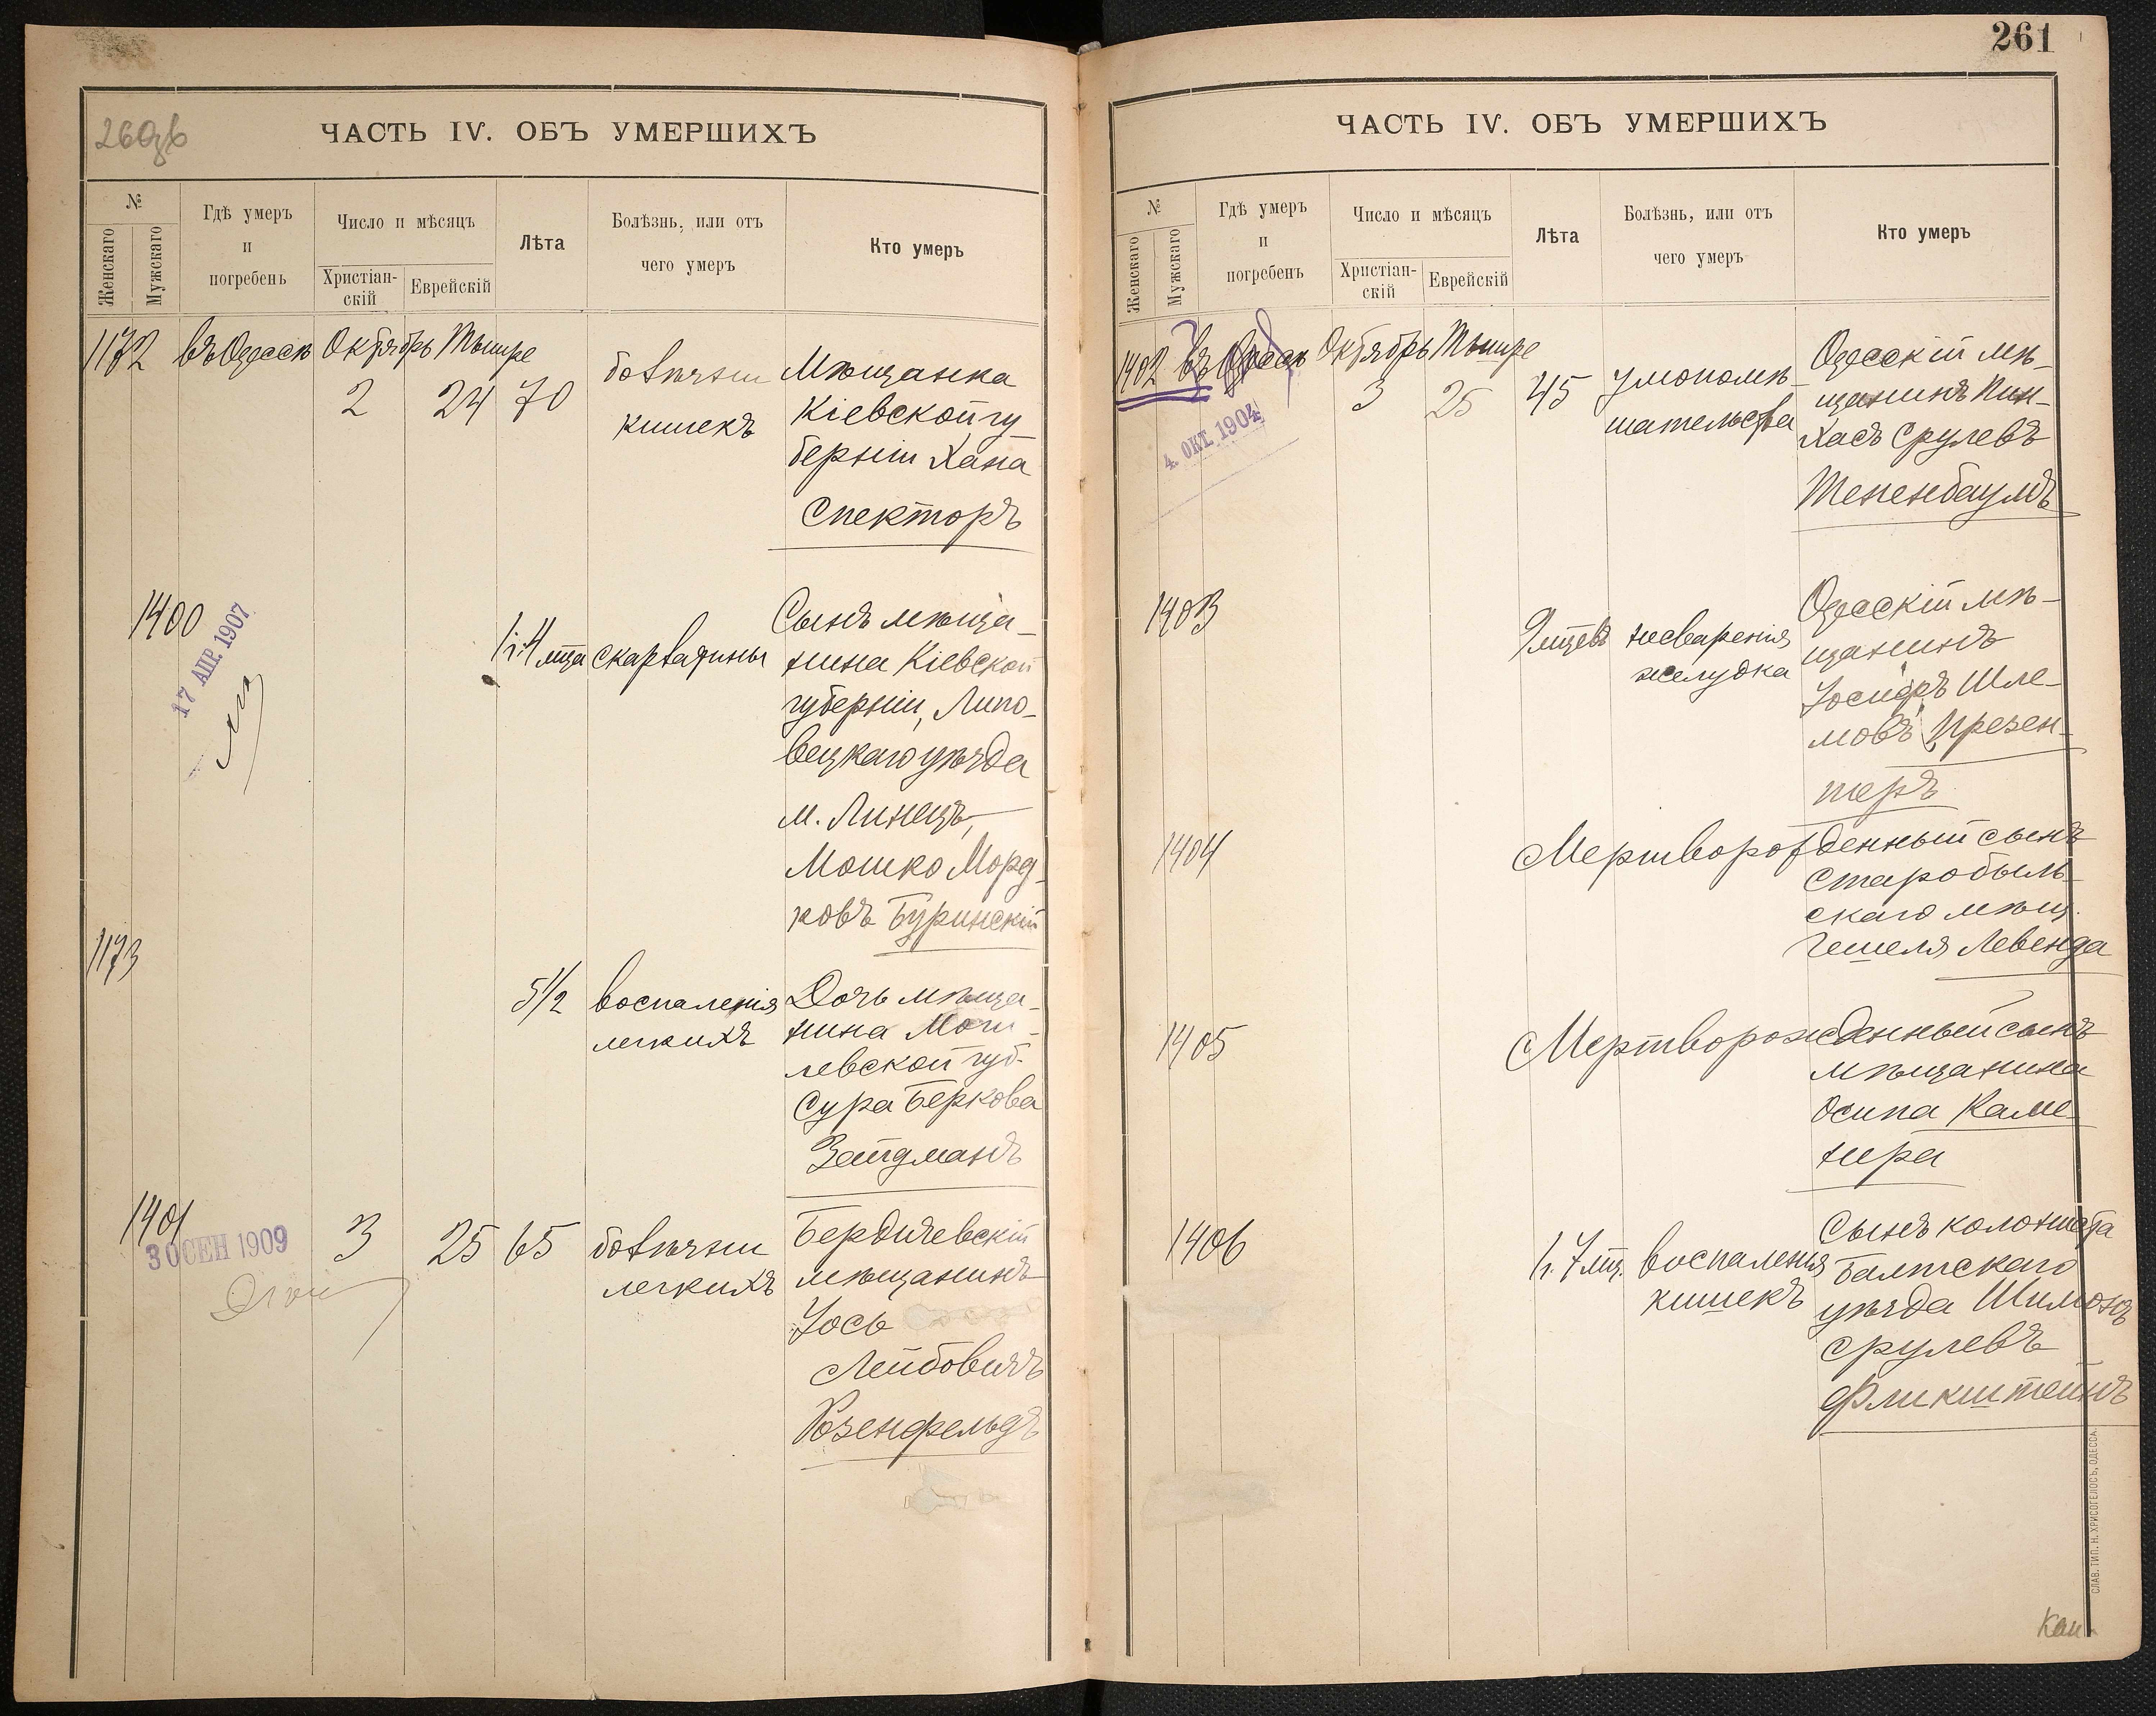 260об
ЧАСТЬ IV. ОБЪ УМЕРШИХЪ
№
Женскаго
Мужскаго
Гдѣ умеръ
и
погребенъ
Число и мѣсяцъ
Христіан-
скій
Еврейскій
Лѣта
Болѣзнь, или отъ
чего умеръ
Кто умеръ
1172 въ Одессѣ Октябрь Тышре
2 24 70
болѣзни
кишекъ
Мѣщанка
Кіевской гу
берніи Хана
Спекторъ
1400
17 АПР. 1907
1 г. 4 мца скарлатины
Сынъ мѣща-
нина Кіевской
губерніи, Липо-
вецкаго уѣзда
м. Линецъ,
Мошко Морд-
ковъ Буринскій
1173
5 1/2 воспаленія
легкихъ
Дочь мѣща-
нина Моги-
левской губ.
Сура Беркова
Зейдманъ
1401
3 0 СЕН 1909
3 25 65 болѣзни
легкихъ
Бердичевскій
мѣщанинъ
Іось
Лейбовичъ
Розенфельдъ
261
ЧАСТЬ IV. ОБЪ УМЕРШИХЪ
№
Женскаго
Мужскаго
Гдѣ умеръ
и
погребенъ
Число и мѣсяцъ
Христіан-
скій
Еврейскій
Лѣта
Болѣзнь, или отъ
чего умеръ
Кто умеръ
1402 въ Одессѣ Октябрь Тышре
3 25 45
4. ОКТ. 1904
умопомѣ-
шательства
Одесскій мѣ-
щанинъ Пин-
хасъ Срулевъ
Тененбаумъ
1403
9 мцевъ несваренія
желудка
Одесскій мѣ-
щанинъ
Іосифъ Шле-
мовъ Презен-
теръ
1404
Мертворожденный сынъ
Старобыль-
скаго мѣщ.
Гешеля Левенда
1405
Мертворожденный сынъ
мѣщанина
Осипа Каме-
нира
1406
1 г. 7 мц. воспаленія
кишекъ
Сынъ колониста
Балтскаго
уѣзда Шимонъ
Срулевъ
Фликштейнъ
СЛАВ. ТИП. Н. ХРИСОГЕЛОСЪ, ОДЕССА.